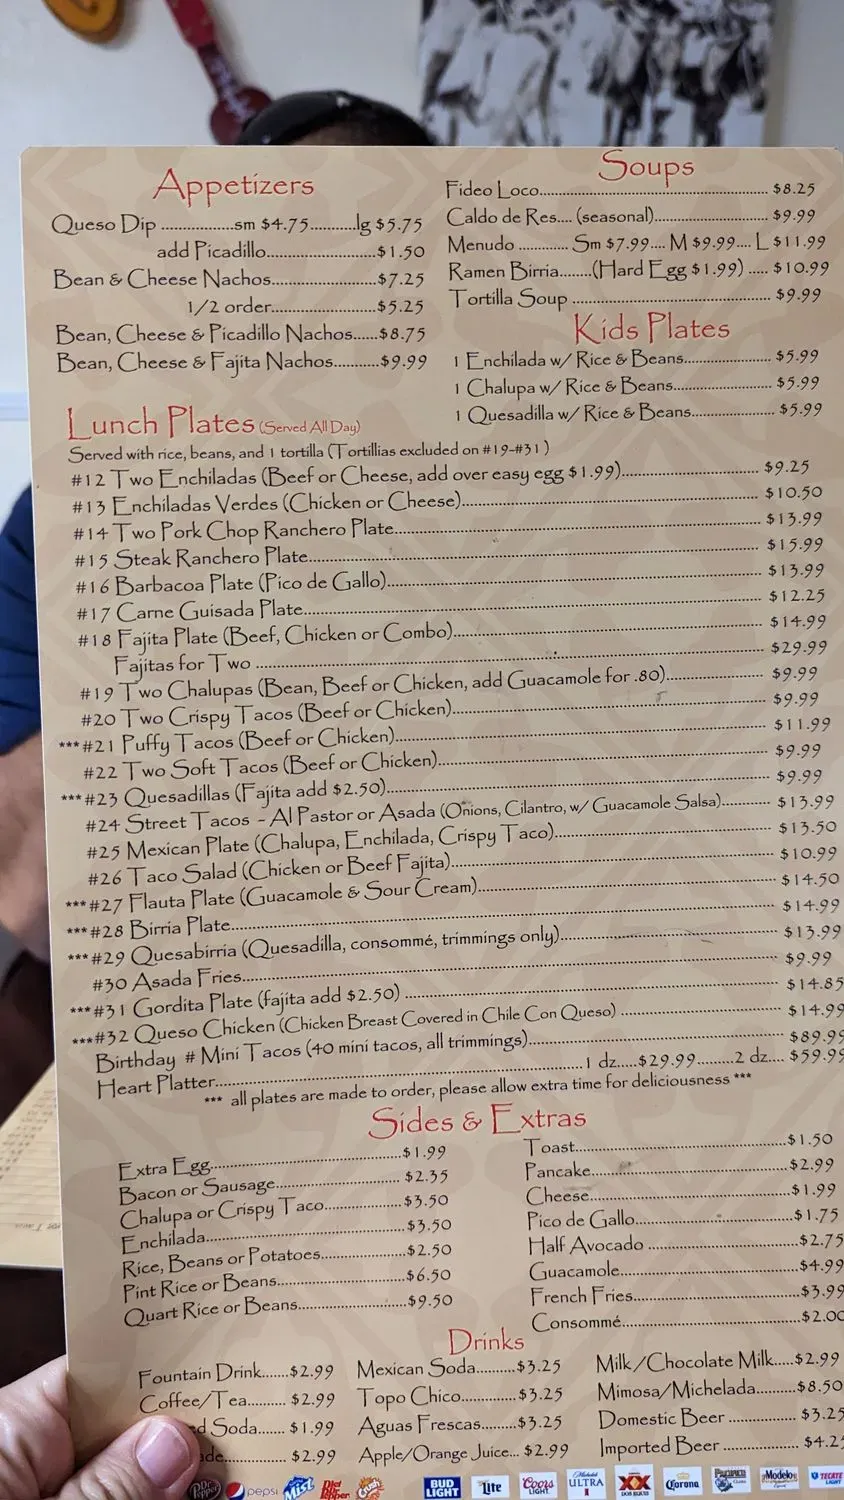 Appetizers
Queso Dip ................sm $4.75..........lg $5.75
add Picadillo........................$1.50
Bean & Cheese Nachos.......................$7.25
1/2 order.......................$5.25
Bean, Cheese & Picadillo Nachos......$8.75
Bean, Cheese & Fajita Nachos..........$9.99
Soups
Fideo Loco.................................................. $8.25
Caldo de Res.... (seasonal)........................ $9.99
Menudo ............ Sm $7.99.... M $9.99.... L $11.99
Ramen Birria........(Hard Egg $1.99) ..... $10.99
Tortilla Soup ........................................... $9.99
Kids Plates
1 Enchilada w/ Rice & Beans................... $5.99
1 Chalupa w/ Rice & Beans..................... $5.99
1 Quesadilla w/ Rice & Beans.................. $5.99
Lunch Plates (Served All Day)
Served with rice, beans, and 1 tortilla (Tortillias excluded on #19-#31)
#12 Two Enchiladas (Beef or Cheese, add over easy egg $1.99)........................ $9.25
#13 Enchiladas Verdes (Chicken or Cheese)........................ $10.50
#14 Two Pork Chop Ranchero Plate........................ $13.99
#15 Steak Ranchero Plate........................ $15.99
#16 Barbacoa Plate (Pico de Gallo)........................ $13.99
#17 Carne Guisada Plate........................ $12.25
#18 Fajita Plate (Beef, Chicken or Combo)........................ $14.99
Fajitas for Two ........................ $29.99
#19 Two Chalupas (Bean, Beef or Chicken, add Guacamole for .80)........................ $9.99
#20 Two Crispy Tacos (Beef or Chicken)........................ $9.99
***#21 Puffy Tacos (Beef or Chicken)........................ $11.99
#22 Two Soft Tacos (Beef or Chicken)........................ $9.99
***#23 Quesadillas (Fajita add $2.50)........................ $9.99
#24 Street Tacos - Al Pastor or Asada (Onions, Cilantro, w/ Guacamole Salsa)............ $13.99
#25 Mexican Plate (Chalupa, Enchilada, Crispy Taco)........................ $13.50
#26 Taco Salad (Chicken or Beef Fajita)........................ $10.99
***#27 Flauta Plate (Guacamole & Sour Cream)........................ $14.50
***#28 Birria Plate........................ $14.99
***#29 Quesabirria (Quesadilla, consommé, trimmings only)........................ $13.99
#30 Asada Fries........................ $9.99
***#31 Gordita Plate (fajita add $2.50) ........................ $14.85
***#32 Queso Chicken (Chicken Breast Covered in Chile Con Queso) ........................ $14.99
Birthday # Mini Tacos (40 mini tacos, all trimmings)........................ $89.99
Heart Platter........................1 dz.....$29.99.........2 dz.... $59.99
*** all plates are made to order, please allow extra time for deliciousness ***
Sides & Extras
Extra Egg........................$1.99
Bacon or Sausage........................ $2.35
Chalupa or Crispy Taco..............$3.50
Enchilada........................$3.50
Rice, Beans or Potatoes..............$2.50
Pint Rice or Beans........................$6.50
Quart Rice or Beans..................$9.50
Toast........................$1.50
Pancake........................$2.99
Cheese........................$1.99
Pico de Gallo........................$1.75
Half Avocado ........................$2.75
Guacamole........................$4.99
French Fries........................$3.99
Consommé........................$2.00
Drinks
Fountain Drink.......$2.99
Coffee/Tea........ $2.99
ed Soda...... $1.99
ade............. $2.99
Mexican Soda.........$3.25
Topo Chico............$3.25
Aguas Frescas........$3.25
Apple/Orange Juice... $2.99
Milk/Chocolate Milk.....$2.99
Mimosa/Michelada.........$8.50
Domestic Beer ..............$3.25
Imported Beer .............. $4.2
Dr Pepper pepsi Mist Diet Dr Pepper Crush BUD LIGHT Lite Coors LIGHT Michelob ULTRA XX DOS EQUIS Corona Pacifico Modelo TECATE LIGHT